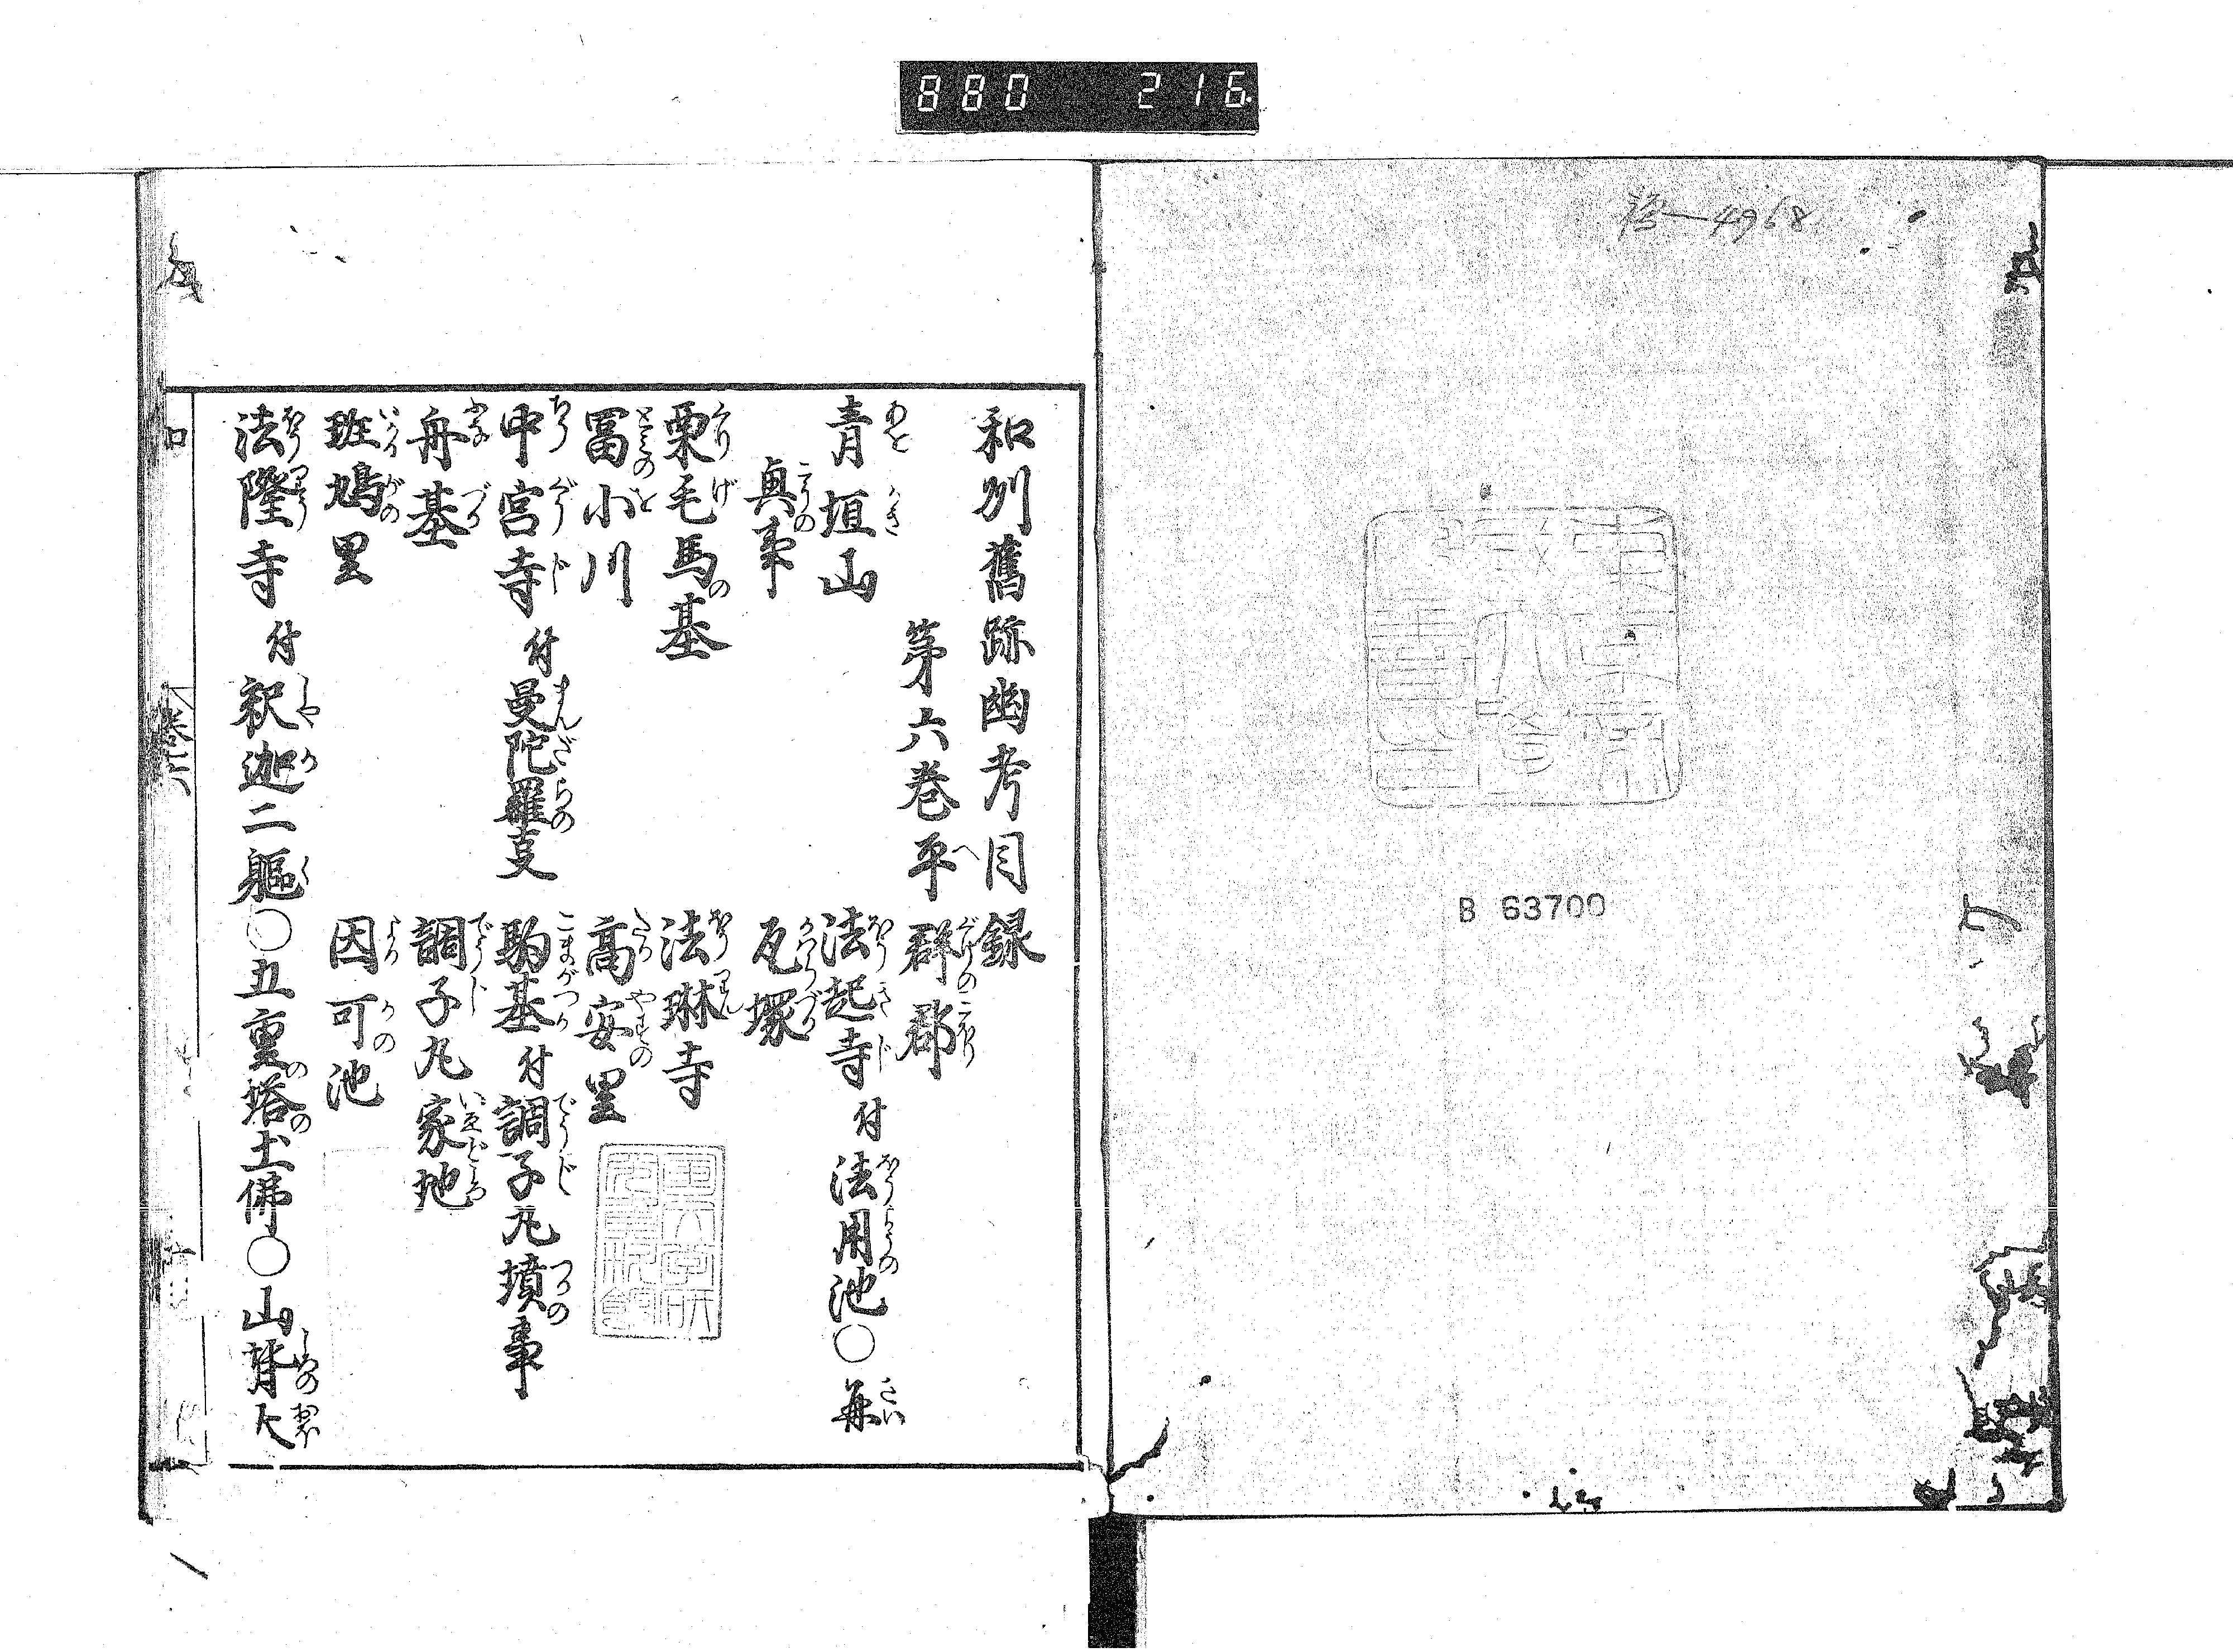 880 216.
4968
B 63700
和刕舊跡幽考目録
第六巻平群郡
青垣山 法起寺付法用池○再
興事 瓦塚
栗毛馬基 法琳寺
冨小川 高安里
中宮寺付曼陀羅㕝 駒基付調子丸墳事
舟基 調子丸家地
班鳩里 因可池
法隆寺付釈迦二軀○五重塔土佛○山背大